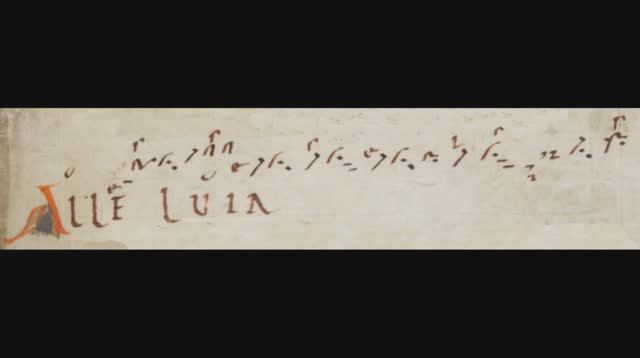 ALLE LUIA